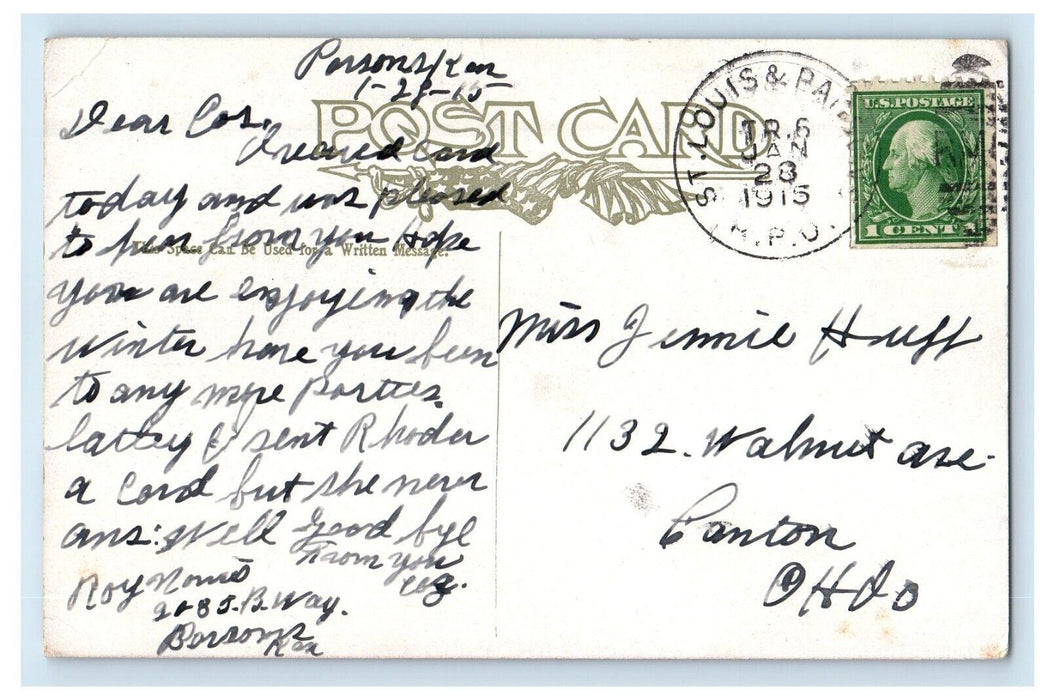 Parsons/Kan
1-28-15
Dear Cos.
POST CARD
I recived Card
today and was pleased
to hear from you Hope
This Space Can Be Used for a Written Message.
you are enjoying the
Winter have you been
to any more Parties.
lattey I sent Rhoder
a Card but she never
ans: Well Good bye
From you
Coz.
Roy
B. Way.
Parsons
Kan
ST. LOUIS &
TR. 6
JAN
28
1915
R.P.O.
U.S. POSTAGE
1 CENT
Miss Jennie Huff
1132. Walnut ave.
Canton
OHIO